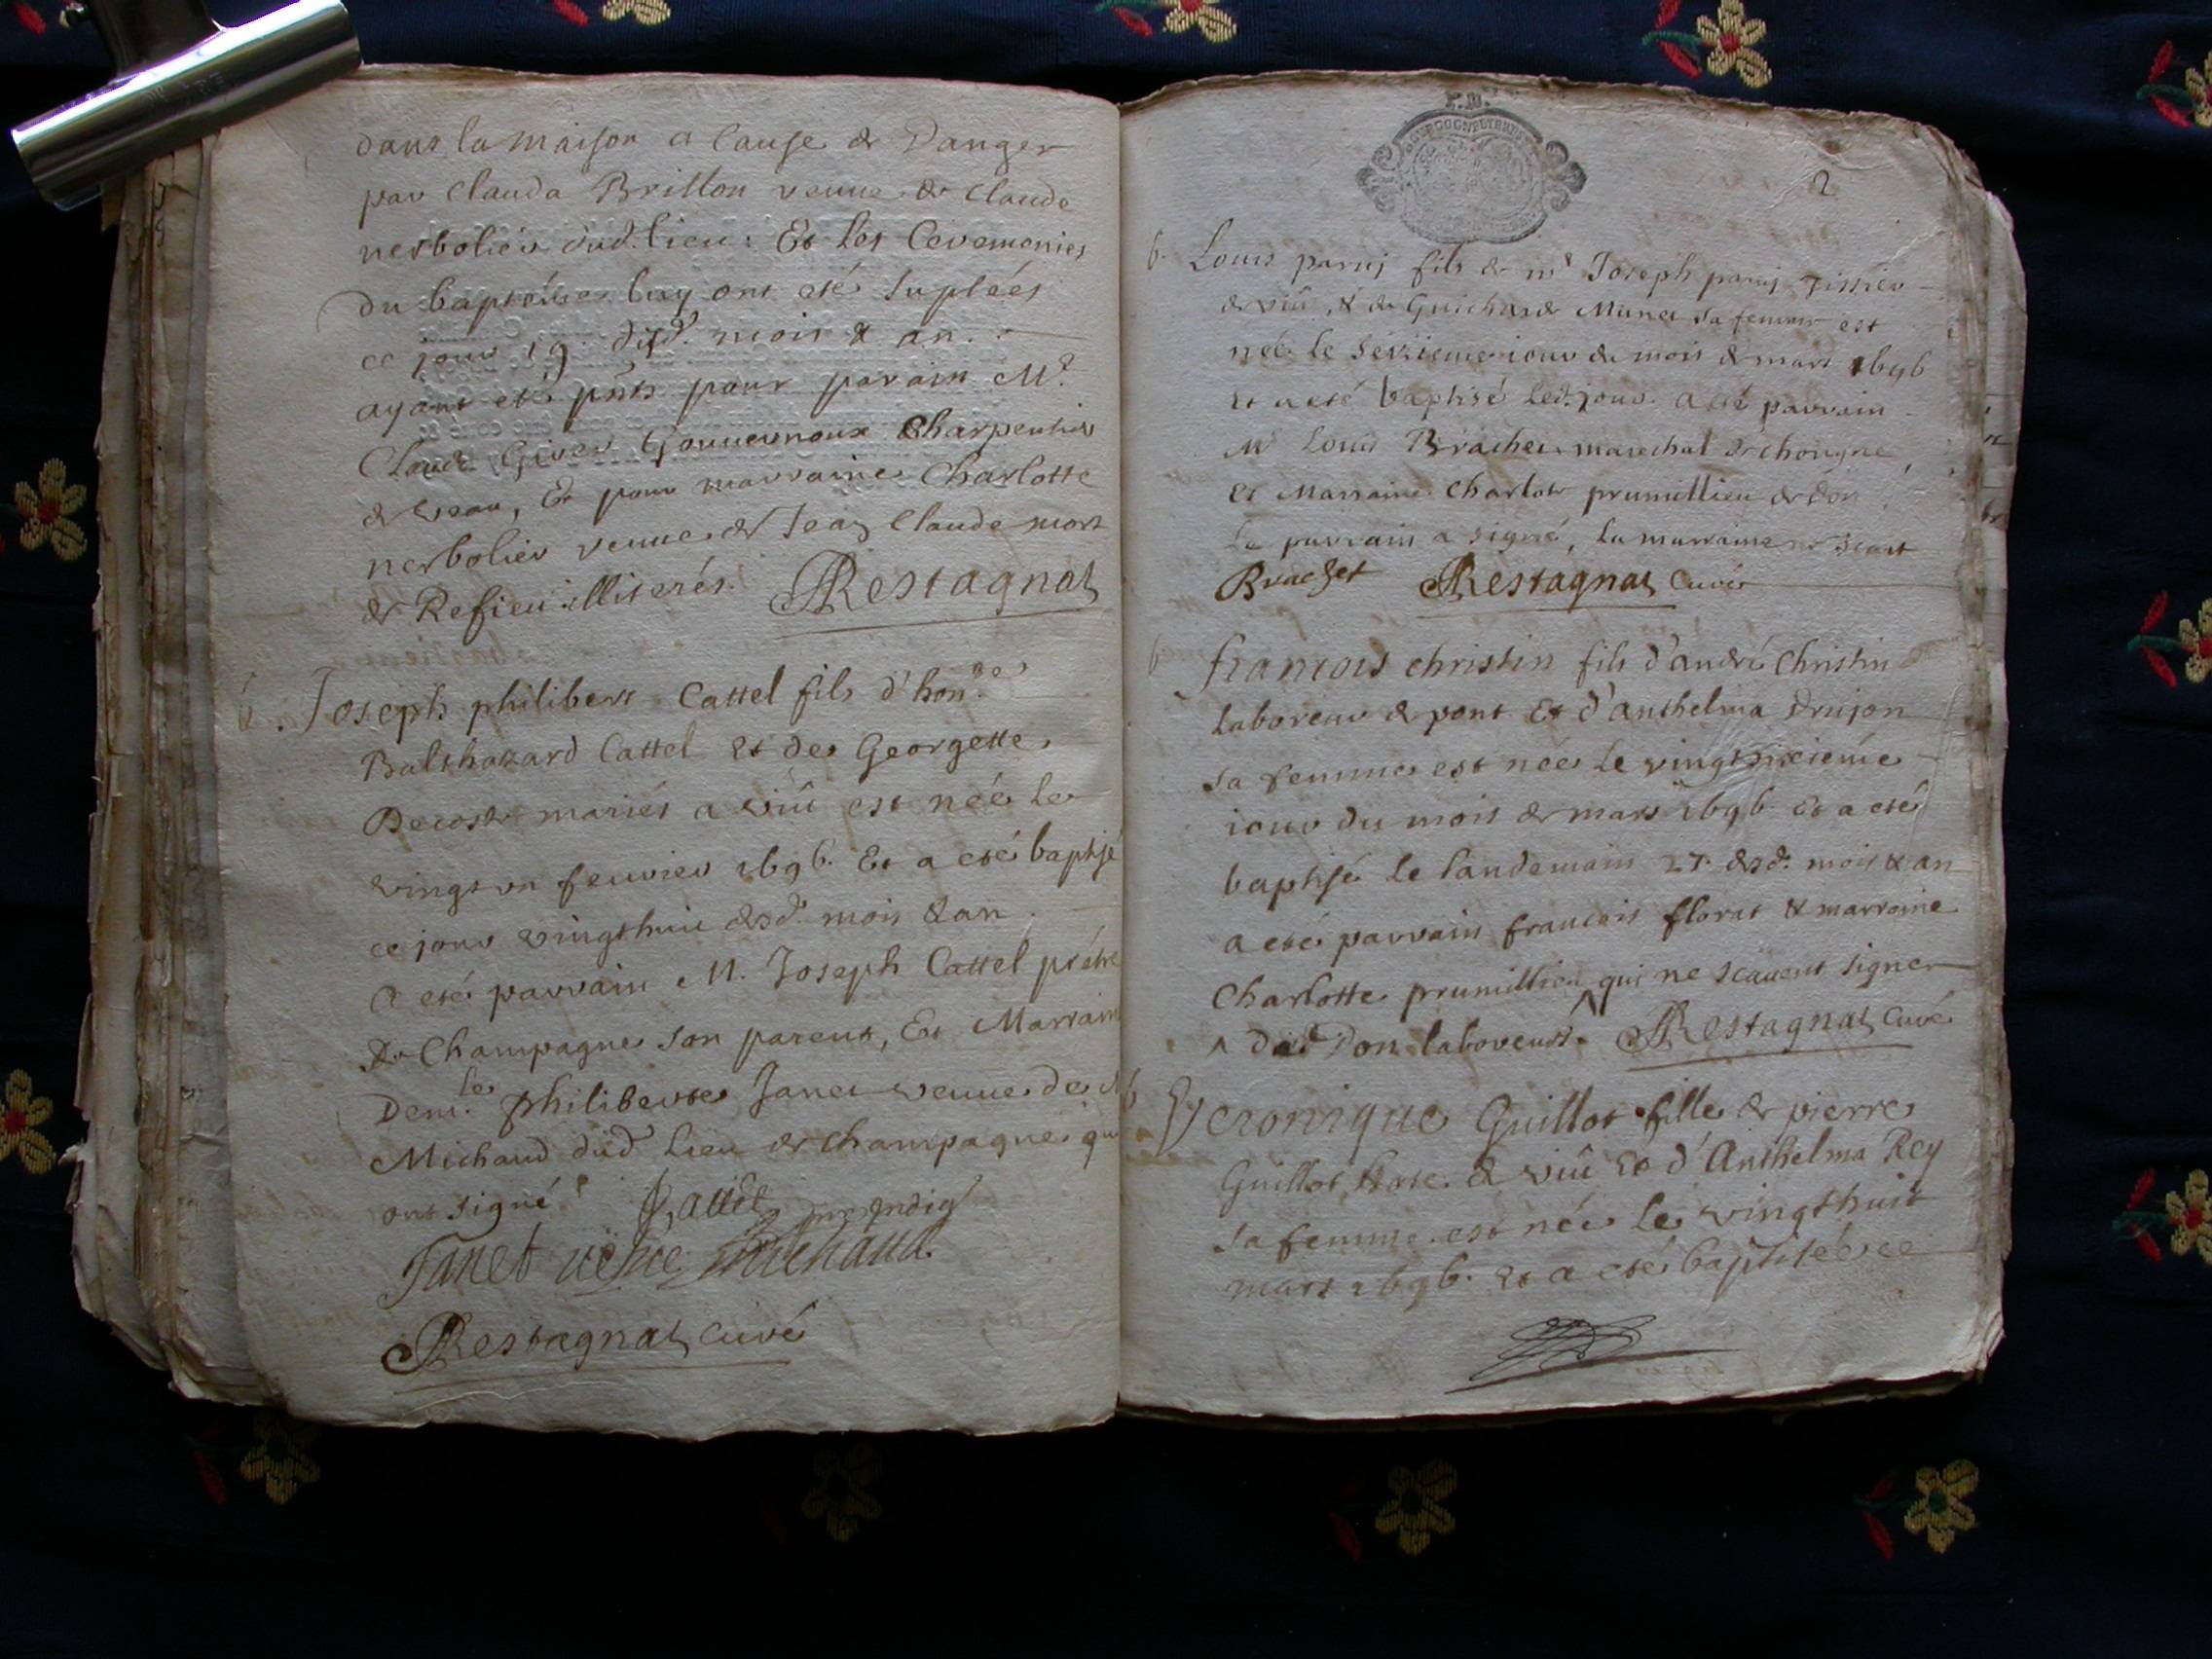 dans la maison a cause de Danger
par Clauda Brillon veuue de Claude
nerbolier dud. lieu: Et les Ceremonies
du baptéme luy ont eté suplées
ce jour 19. dud. mois & an.
ayant eté pnts pour parain Mr.
Claude Gouuernoux Charpentier
de et pour marraine Charlotte
nerbolier veuue de Jean Claude mort
de Refieu illiterés. Restagnat
b. Joseph philibert Cattel fils d'honble
Balthazard Cattel et de Georgette
Decoste mariés a viû est née le
vingt un feurier 1696. Et a eté baptisé
ce jour vingthuit dud. mois & an.
a eté parrain M. Joseph Cattel prétre
de Champagne son parent, Et Marraine
Demle. philiberte Janet veuue de
Michaud dud. lieu de Champagne qui
ont signé Cattel
Janet Michaud
Restagnat Curé
2
b. Louis paruj fils de mr Joseph paruj Tissier
de viû, & de Guicharde Munet sa femme est
née le seizieme iour du mois de mars 1696
et a eté baptisé led. jour a eté parrain
Mr Louis Brachet marechal de chongne,
et Marraine Charlote prumillieu de Don
le parrain a signé, la marraine ne scait
Brachet Restagnat Curé
b francois christin fils d'andré Christin
laboreur de pont Et d'anthelma Drujon
sa femme est née le vingtsixieme
iour du mois de mars 1696 et a eté
baptisé le landemain 27. dud. mois & an
a eté parrain francois florat & marraine
Charlotte prumillieu ^ qui ne scauent signer
^ dud. Don laboreurs. Restagnat Curé
b Veronique Guillot fille de pierre
Guillot de viû et d'Anthelma Rey
sa femme est née le vingthuit
mars 1696. et a eté baptisée ce